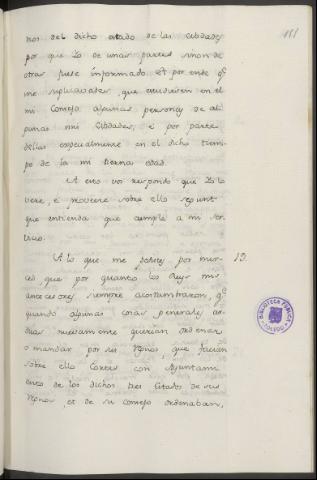 161
dios del dicho estado de las Cibdades
por que Yo de unas partes sinon de
otras fuese informado. Et por ende qe
me suplicavades, que estudiesen en el
mi Consejo algunas personas de al-
gunas mis Cibdades, e por parte
dellas especialmente en el dicho tiem-
po de la mi tierna edad.
A esto vos respondo que Yo lo
veré, e proveeré sobre ello segunt
que entienda que cumple a mi ser-
vicio.
A lo que me pedistes por mer- 19.
ced, que por quanto los Reys mis
antecesores siempre acostumbraron, qe
quando algunas cosas generales, ar-
duas nuevamente querian ordenar
o mandar por sus Regnos, que facian
sobre ello Cortes con Ayuntami-
ento de los dichos tres Estados de sus
Regnos, et de su consejo ordenaban,
BIBLIOTECA PUBLICA
TOLEDO